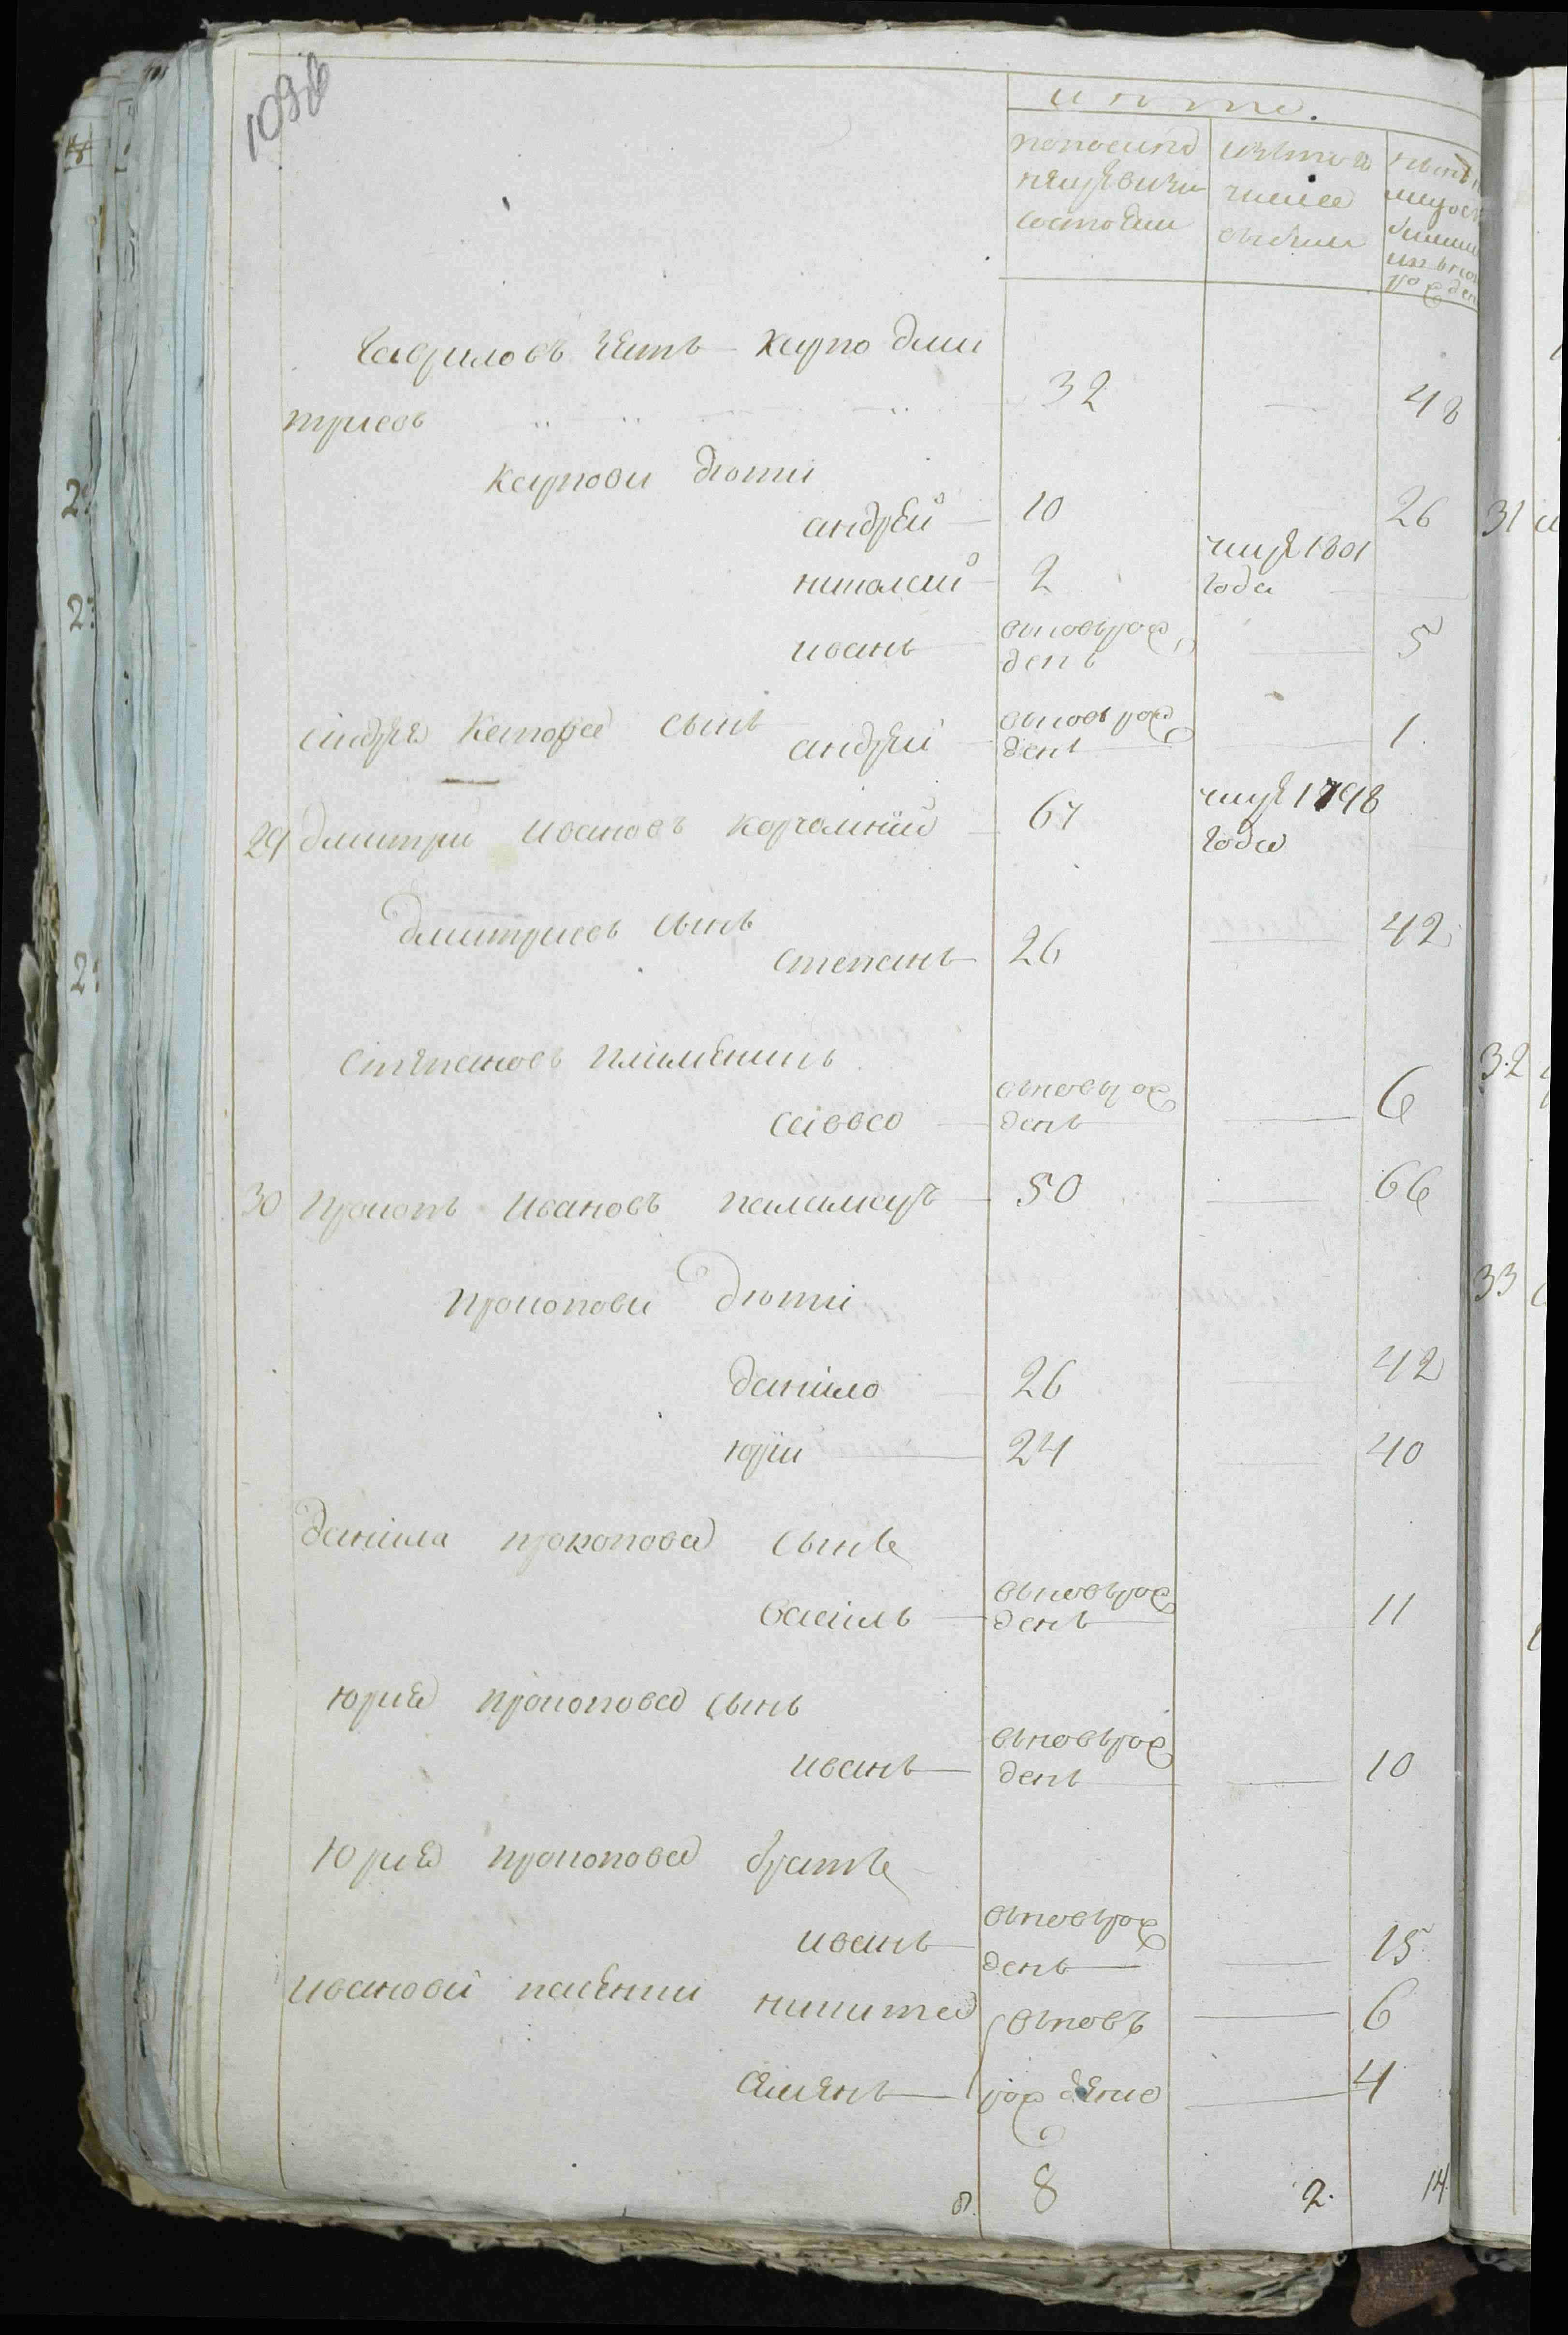 109об
лѣта.
попоследней
пящей ревизии
состояли
изътого
числа
выбыли
Гавриловъ зять Карпо Дми
триевъ 32 — 48
Карпови дюти
андрей 10 26
николай 2 умре 1801
года
иванъ вновьрож
денъ — 5
андрея Карпова сынъ
андрей вновь рож
денъ — 1
29 Дмитри Ивановъ 67 умре 1798
года
Дмитриевъ сынъ
степанъ 26 — 42
Стяпановъ плимянинъ
савва вновьрож
денъ — 6
30 Прокопъ Ивановъ паламарь 50 — 66
Прокопови дюти
данило 26 — 42
юрїи 24 — 40
данила прокопова сынъ
василь вновьрож
денъ 11
юрия прокопова сынъ
иванъ вновьрож
денъ — 10
Юрия прокопова братъ
иванъ вновьрож
денъ — 15
Ивановы никита вновъ — 6
сямянъ рождяно — 4
8 2. 14
31
32
33